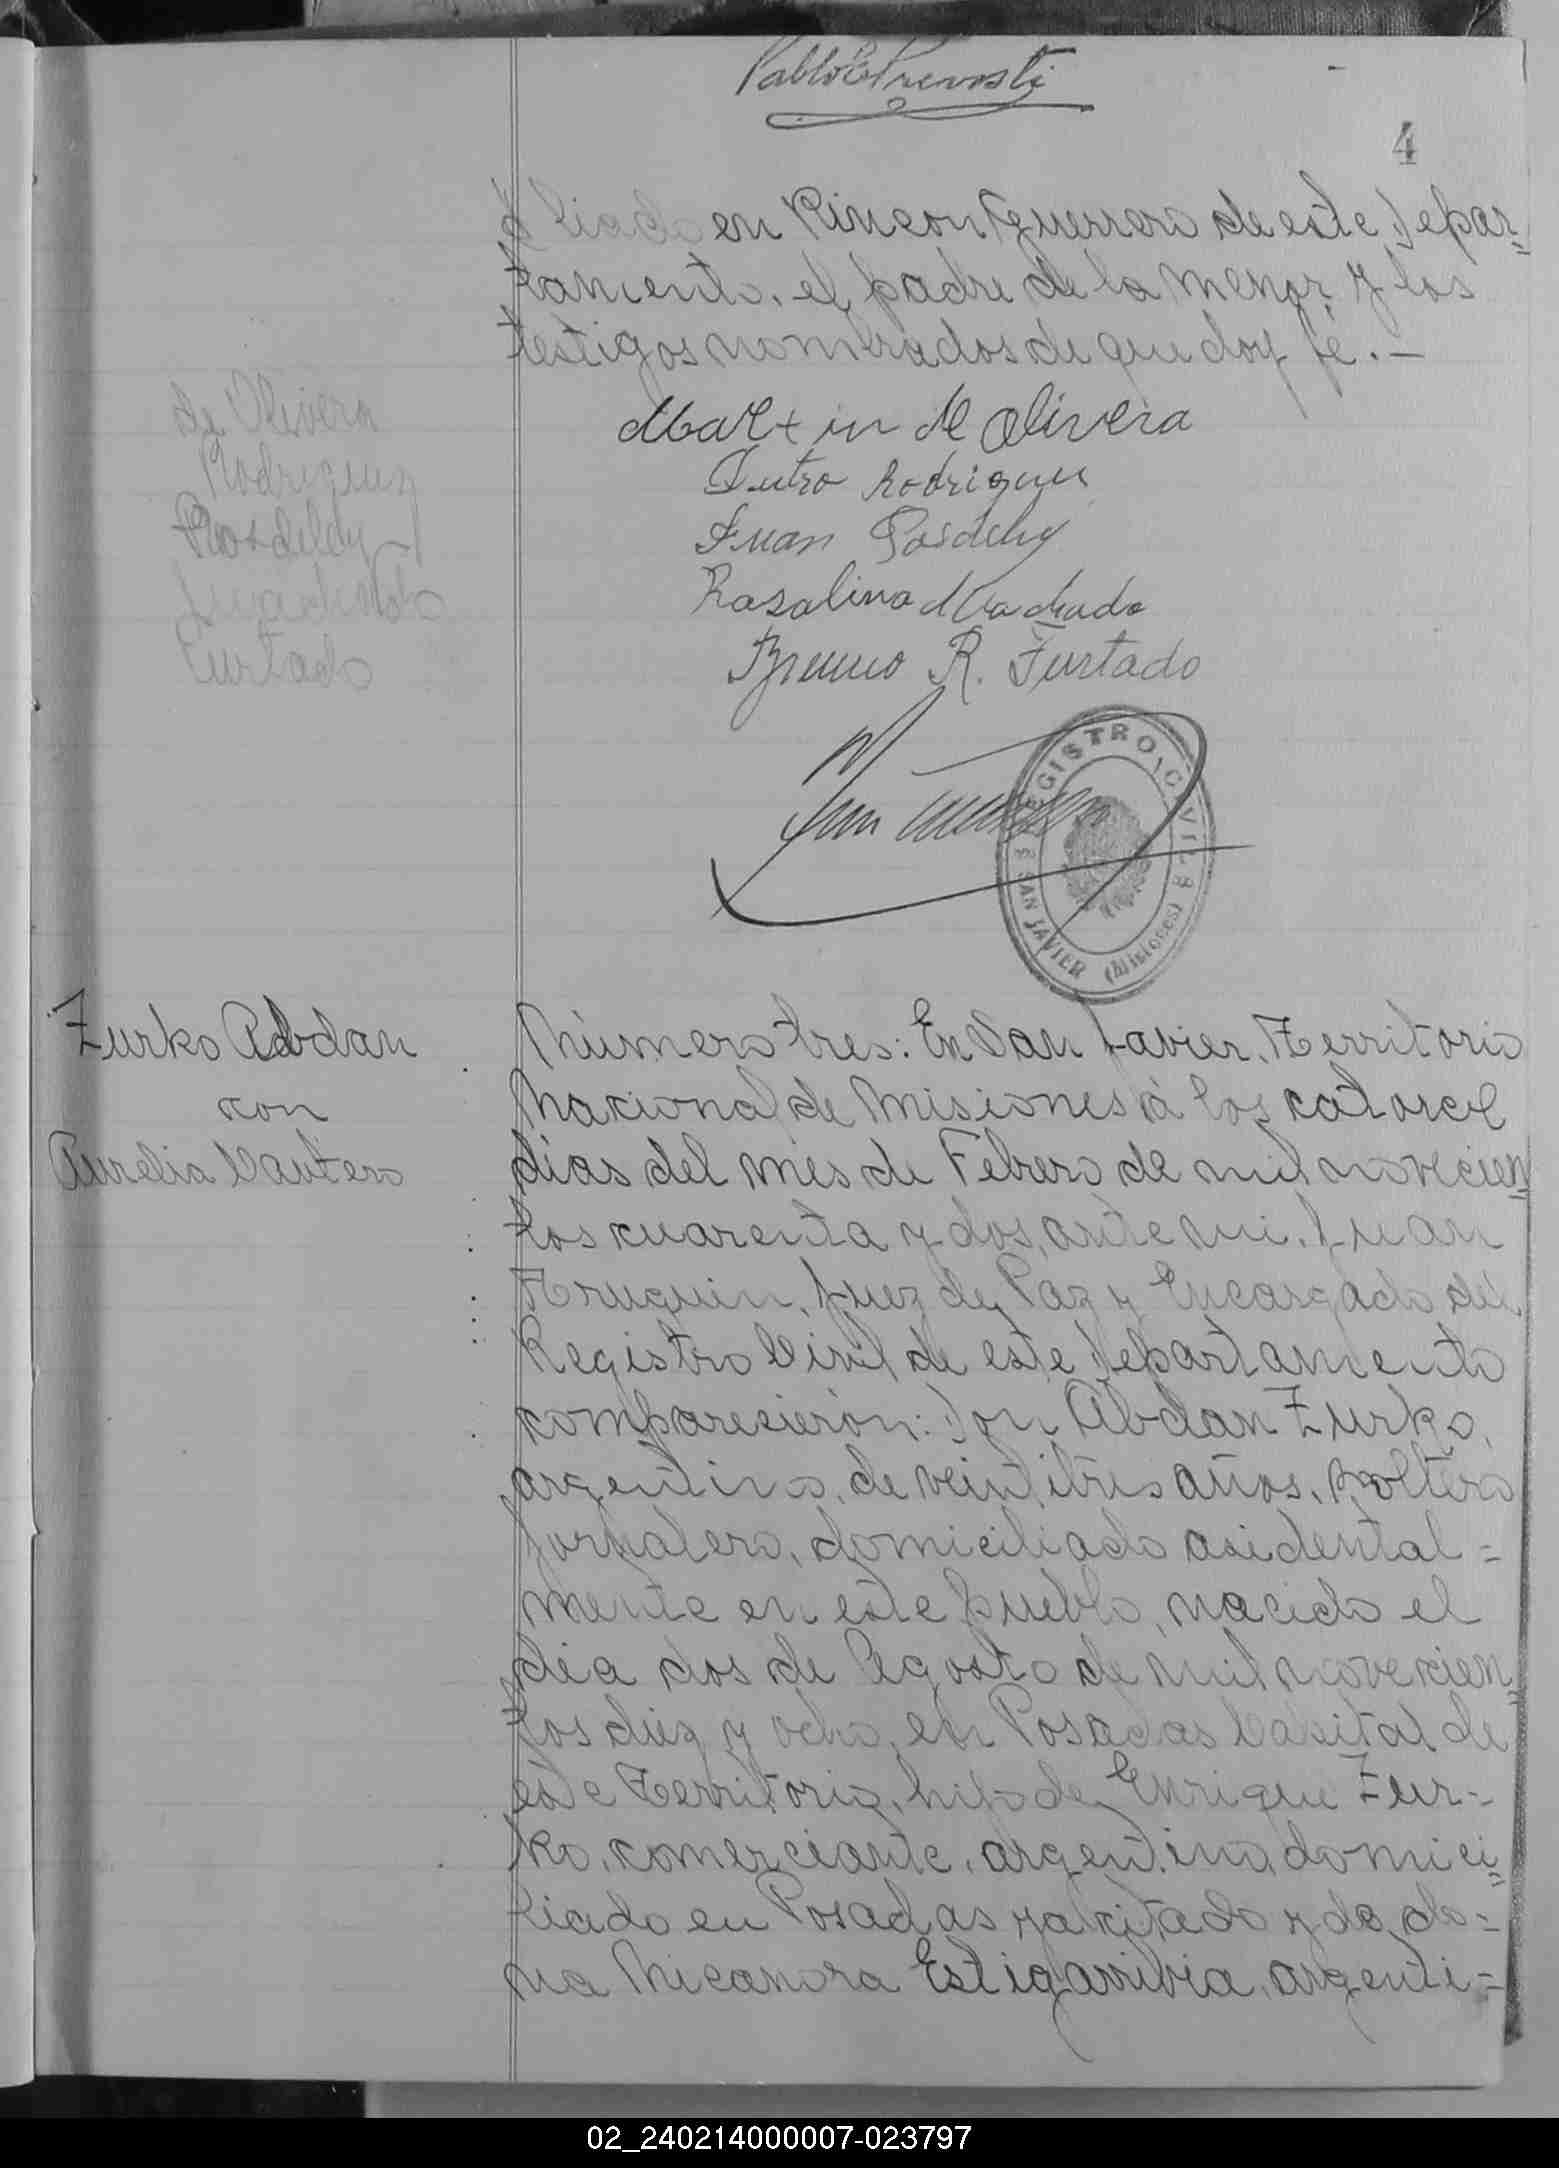 Pablo E Prevosti
4
liado en Rincon Guerrero de este Depar=
tamento, el padre de la menor y los
testigos nombrados de que doy fé.—
de Olivera
Rodriguez
Posdeley
Machado
Furtado
Martin de Olivera
Rodriguez
Juan Posdeley
Rosalino Machado
Bruno R. Furtado
REGISTRO CIVIL
SAN JAVIER (Misiones)
Zurko Abdan
con
Aurelia Cautero
Número tres: En San Javier, Territorio
Nacional de Misiones á los catorce
dias del mes de Febrero de mil novecien=
tos cuarenta y dos, ante mi, Juan
Truquin, Juez de Paz y Encargado del
Registro Civil de este Departamento
comparesieron: Don Abdan Zurko,
argentino, de veintitres años, soltero
jornalero, domiciliado asidental=
mente en este pueblo, nacido el
dia dos de Agosto de mil novecien=
tos diez y ocho, en Posadas Capital de
este Territorio, hijo de Enrique Zur=
ko, comerciante, argentino, domici=
liado en Posadas ya citado y de do=
na Nicanora Estigarrivia, argenti=
02_240214000007-023797